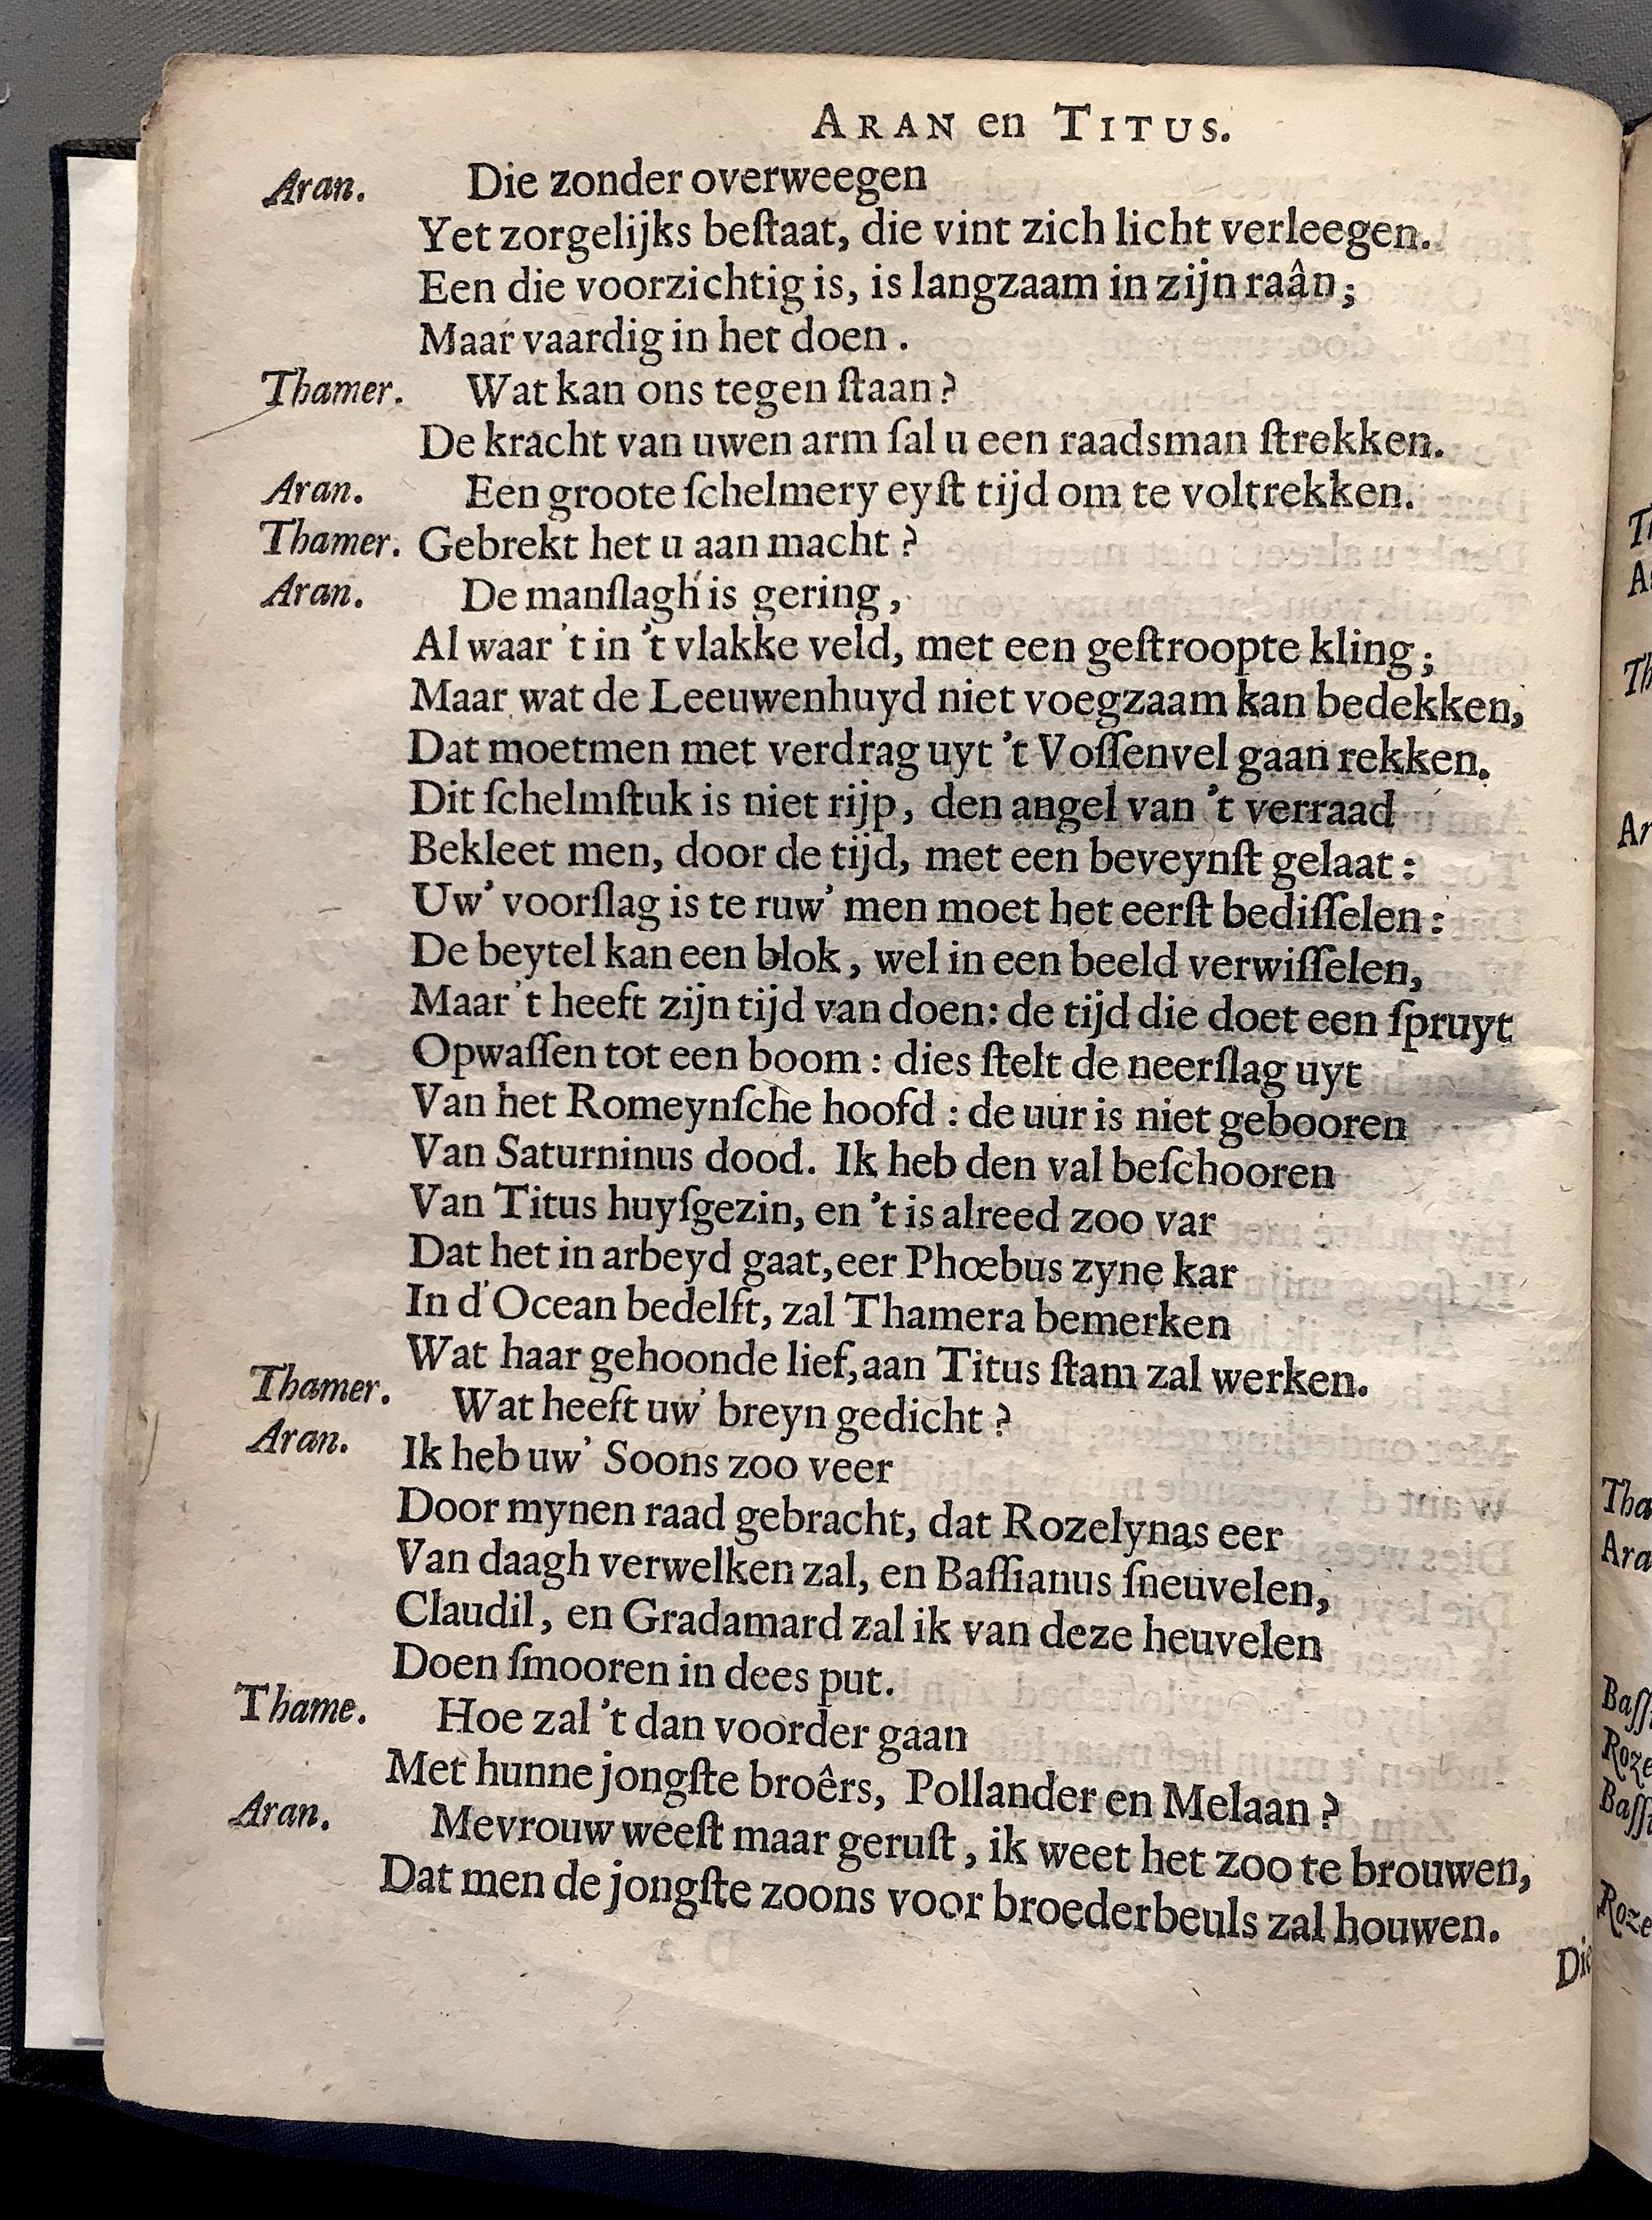 ARAN en TITUS.
Aran. Die zonder overweegen
Yet zorgelijks beſtaat, die vint zich licht verleegen.
Een die voorzichtig is, is langzaam in zijn raân;
Maar vaardig in het doen.
Thamer. Wat kan ons tegen ſtaan?
De kracht van uwen arm ſal u een raadsman ſtrekken.
Aran. Een groote ſchelmery eyſt tijd om te voltrekken.
Thamer. Gebrekt het u aan macht?
Aran. De manſlagh is gering,
Al waar 't in 't vlakke veld, met een geſtroopte kling;
Maar wat de Leeuwenhuyd niet voegzaam kan bedekken,
Dat moetmen met verdrag uyt 't Voſſenvel gaan rekken.
Dit ſchelmſtuk is niet rijp, den angel van 't verraad
Bekleet men, door de tijd, met een beveynſt gelaat:
Uw' voorſlag is te ruw' men moet het eerſt bediſſelen:
De beytel kan een blok, wel in een beeld verwiſſelen,
Maar 't heeft zijn tijd van doen: de tijd die doet een ſpruyt
Opwaſſen tot een boom: dies ſtelt de neerſlag uyt
Van het Romeynſche hoofd: de uur is niet gebooren
Van Saturninus dood. Ik heb den val beſchooren
Van Titus huyſgezin, en 't is alreed zoo var
Dat het in arbeyd gaat, eer Phœbus zyne kar
In d'Ocean bedelft, zal Thamera bemerken
Wat haar gehoonde lief, aan Titus ſtam zal werken.
Thamer. Wat heeft uw' breyn gedicht?
Aran. Ik heb uw' Soons zoo veer
Door mynen raad gebracht, dat Rozelynas eer
Van daagh verwelken zal, en Baſſianus ſneuvelen,
Claudil, en Gradamard zal ik van deze heuvelen
Doen ſmooren in dees put.
Thame. Hoe zal 't dan voorder gaan
Met hunne jongſte broêrs, Pollander en Melaan?
Aran. Mevrouw weeſt maar geruſt, ik weet het zoo te brouwen,
Dat men de jongſte zoons voor broederbeuls zal houwen.
Die